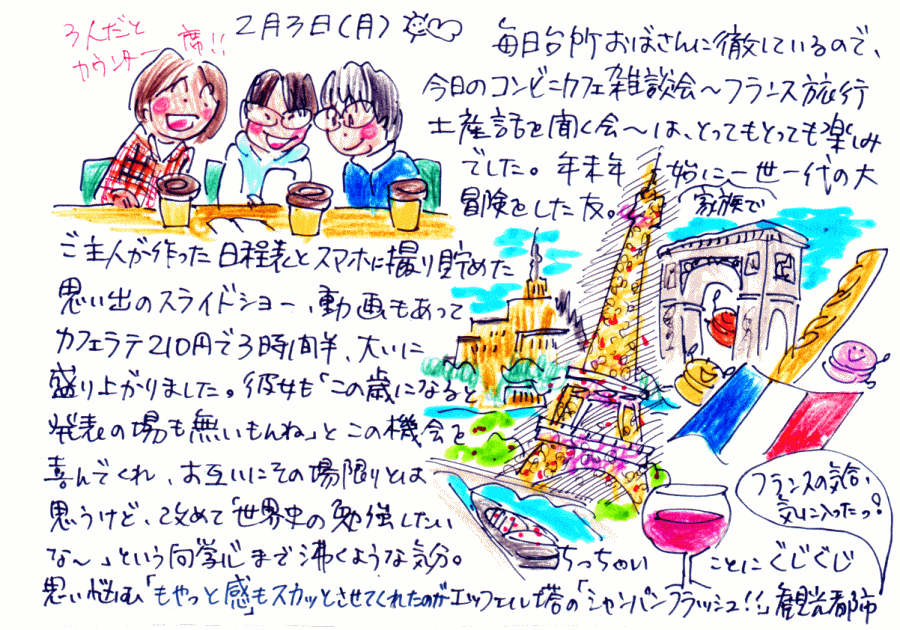 3人だと
カウンター席!!
2月3日(月)
毎日台所おばさんに徹しているので、
今日のコンビニカフェ雑談会～フランス旅行
土産話を聞く会～は、とってもとっても楽しみ
でした。年末年始に一世一代の大
冒険をした友。
家族で
ご主人が作った日程表とスマホに撮り貯めた
思い出のスライドショー、動画もあって
カフェラテ210円で3時間半、大いに
盛り上がりました。彼女も「この歳になると
発表の場も無いもんね」とこの機会を
喜んでくれ、お互いにその場限りとは
思うけど、改めて「世界史の勉強したい
な～」という向学心まで沸くような気分。
ちっちゃいことにぐじぐじ
思い悩む「もやっと感」もスカッとさせてくれたのがエッフェル塔の「シャンパンフラッシュ!!」観光都市
フランスの気合、
気に入ったっ!